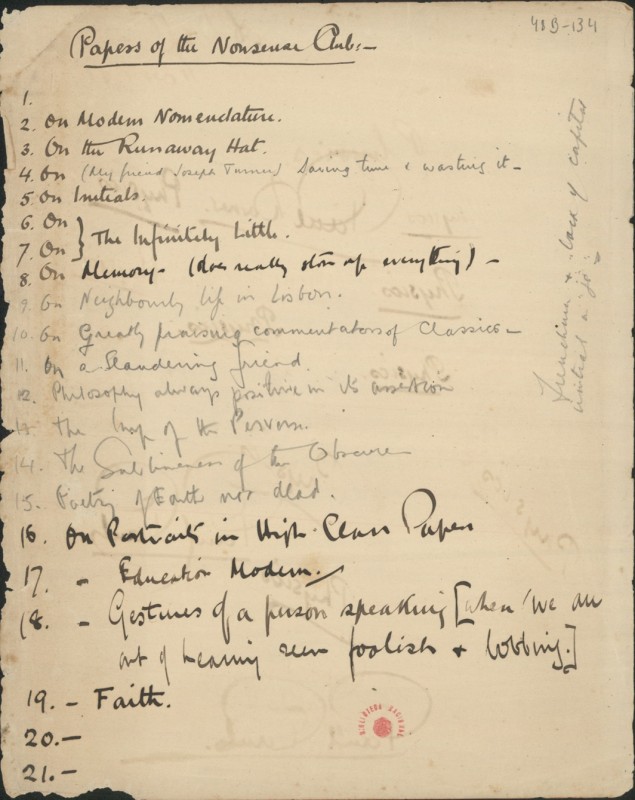 48B-134
Papers of the Nonsense Club:-
1.
2. On Modern Nomenclature.
3. On the Runaway Hat.
4. On (My friend Joseph Turner) Saving time & wasting it -
5. On Initials.
6. On
7. On } The Infinitely Little.
8. On Memory - (does really store up everything) -
9. On Neighbourly life in Lisbon.
10. On Greatly praising commentators of Classics -
11. On a Slandering friend.
12. Philosophy always positive in its assertion
13. The of the
14. The Sublimeness of the Obscure
15. Poetry of Earth not dead.
16. On Portraits in High-Class Papers
17. - Education Modern.
18. - Gestures of a person speaking [when we are
out of hearing seem foolish &
19. - Faith.
20. -
21. -
& lack of capital
initial in
BIBLIOTECA NACIONAL